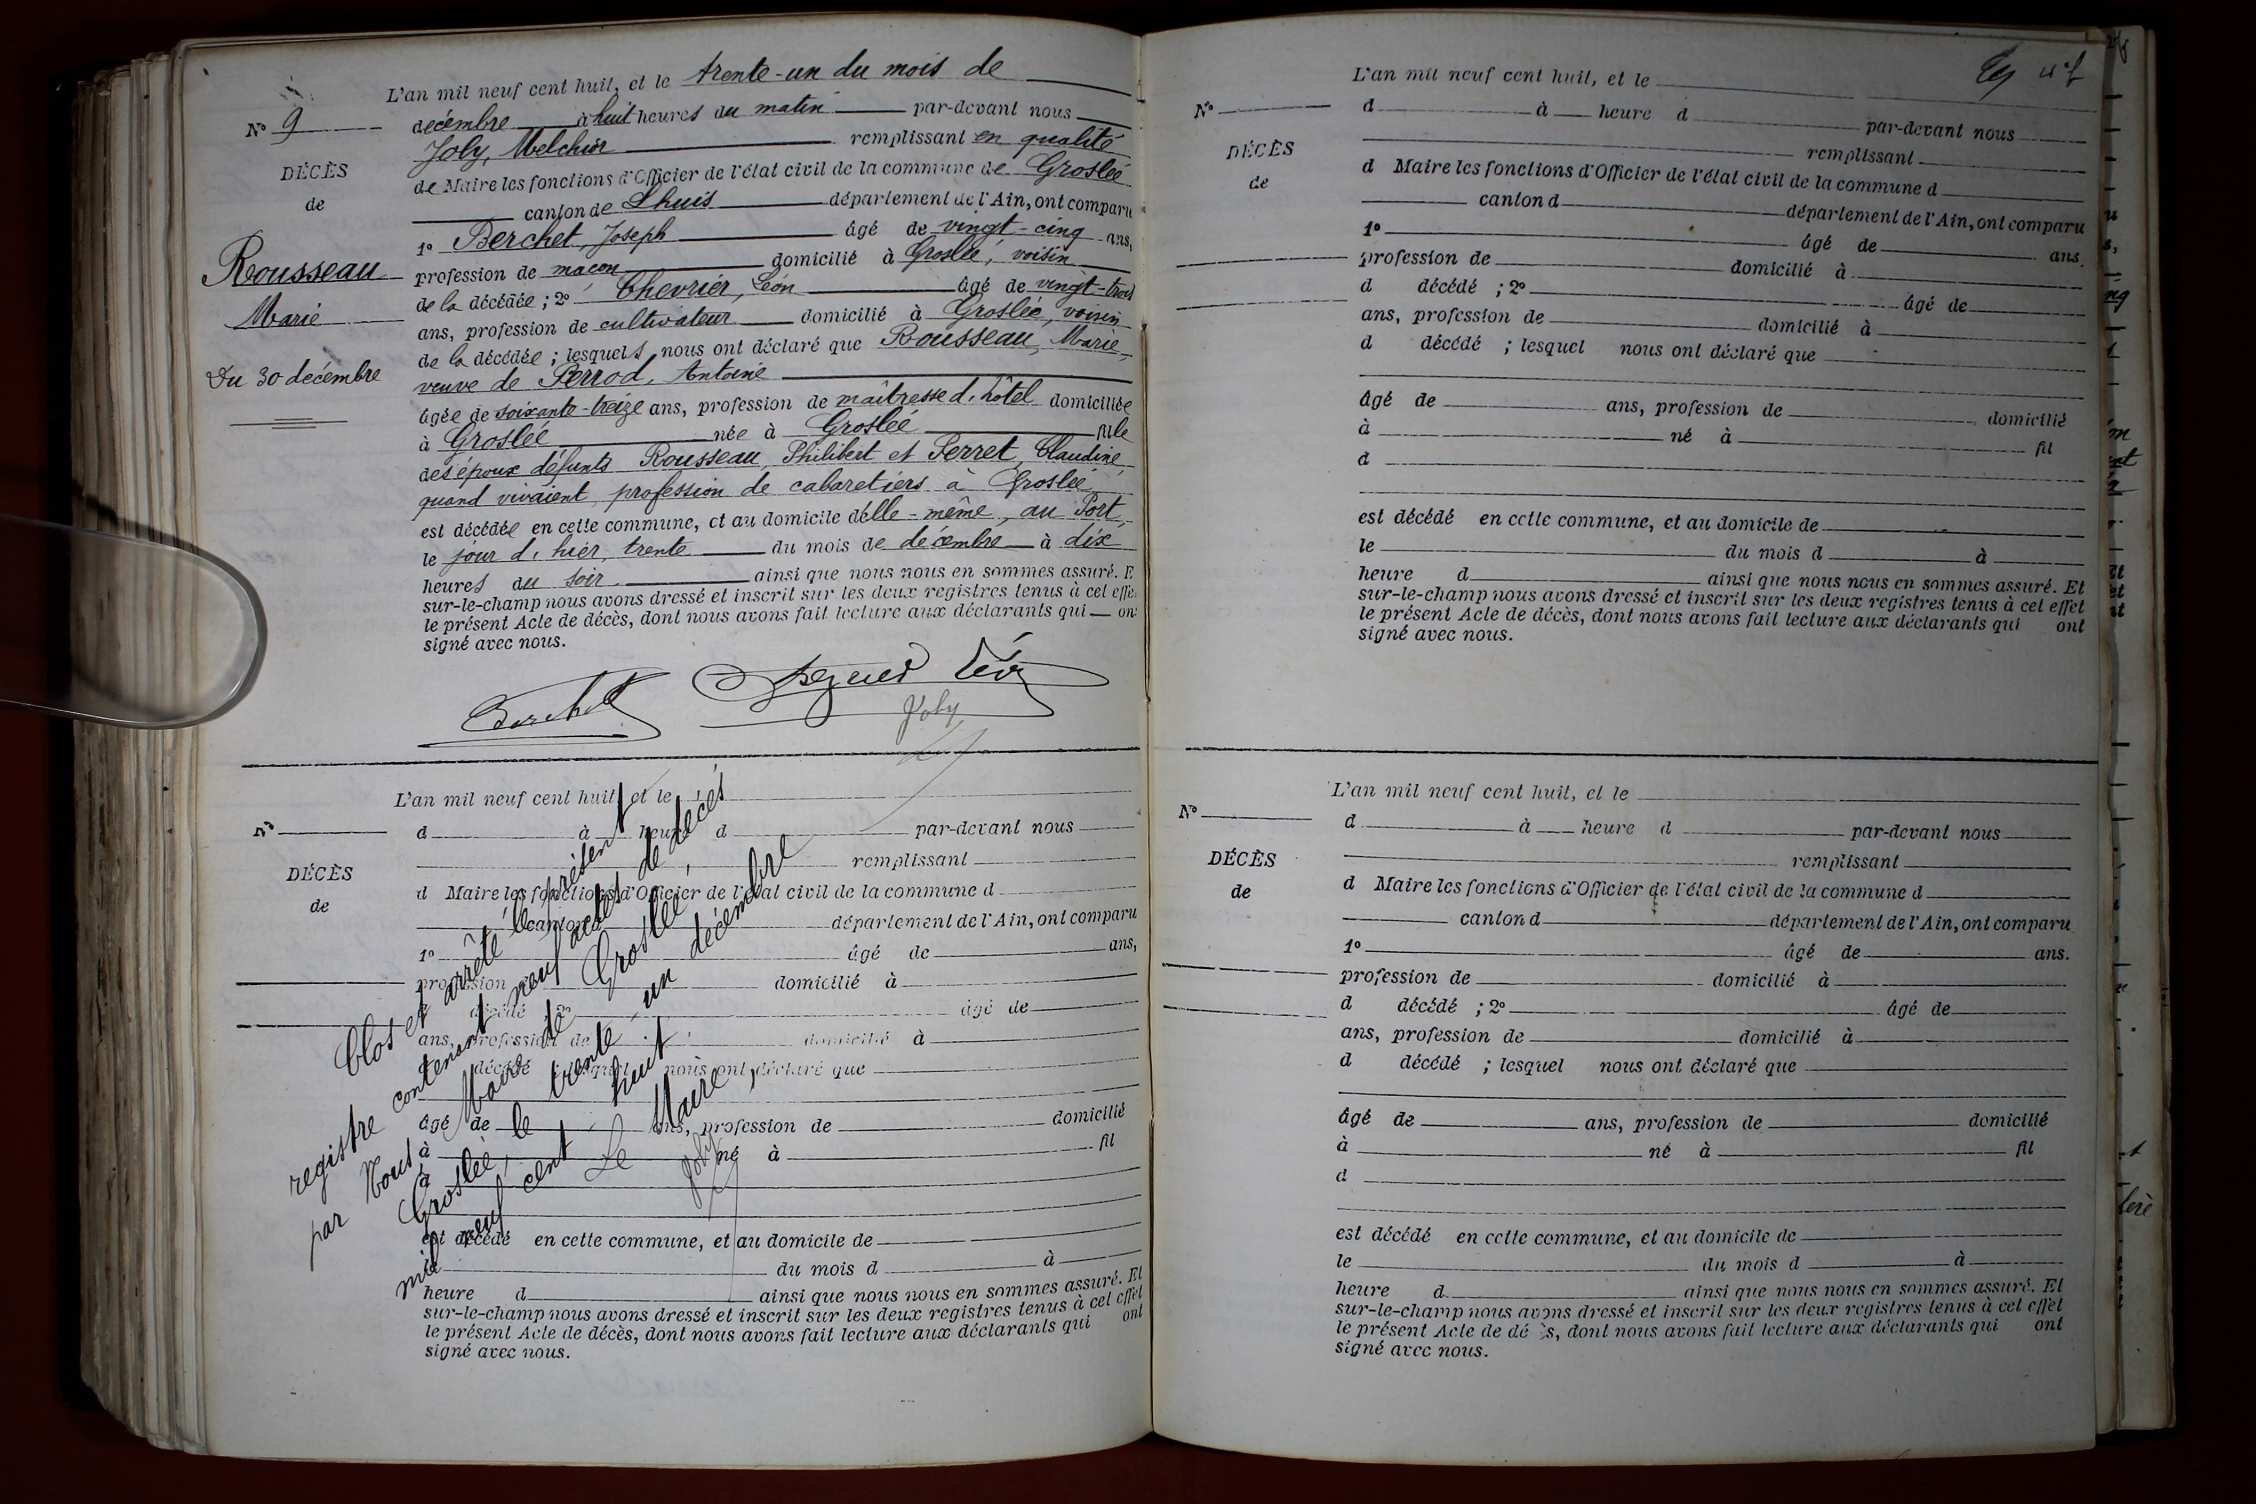 L'an mil neuf cent huit, et le trente-un du mois de
N° 9
décembre à huit heures du matin par-devant nous
Joly, Melchior remplissant en qualité
DÉCÈS
de Maire les fonctions d'Officier de l'état civil de la commune de Groslée
de
canton de Lhuis département de l'Ain, ont comparu
1° Berchet, Joseph âgé de vingt-cinq ans,
Rousseau
profession de maçon domicilié à Groslée, voisin
de la décédée ; 2° Chevrier, Léon âgé de vingt-trois
Marie
ans, profession de cultivateur domicilié à Groslée, voisin
de la décédée ; lesquels nous ont déclaré que Rousseau, Marie,
Du 30 décembre
veuve de Perrod, Antoine
âgée de soixante-treize ans, profession de maîtresse d'hôtel domiciliée
à Groslée née à Groslée fille
des époux défunts Rousseau, Philibert et Perret, Claudine,
quand vivaient, profession de cabaretiers à Groslée,
est décédée en cette commune, et au domicile d'elle-même, au Port,
le jour d'hier, trente du mois de décembre à dix
heures du soir ainsi que nous nous en sommes assuré. E
sur-le-champ nous avons dressé et inscrit sur les deux registres tenus à cet effe
le présent Acte de décès, dont nous avons fait lecture aux déclarants qui — on
signé avec nous.
Berchet
Léon
Joly
L'an mil neuf cent huit, et le
N°
d à heure d par-devant nous
remplissant
DÉCÈS
d Maire les fonctions d'Officier de l'état civil de la commune d
de
canton d département de l'Ain, ont comparu
1° âgé de ans,
profession domicilié à
décédé ; 2° âgé de
ans, profession de domicilié à
décédé ; lesquel nous ont déclaré que
âgé de ans, profession de domicilié
à né à fil
d
est décédé en cette commune, et au domicile de
le du mois d à
heure d ainsi que nous nous en sommes assuré. Et
sur-le-champ nous avons dressé et inscrit sur les deux registres tenus à cet effet
le présent Acte de décès, dont nous avons fait lecture aux déclarants qui ont
signé avec nous.
Clos et arrêté le présent
registre contenant neuf actes de décès
par Nous Maire de Groslée,
à Groslée, le trente-un décembre
mil neuf cent huit.
Le Maire,
Joly
L'an mil neuf cent huit, et le
N°
d à heure d par-devant nous
remplissant
DÉCÈS
d Maire les fonctions d'Officier de l'état civil de la commune d
de
canton d département de l'Ain, ont comparu
1° âgé de ans.
profession de domicilié à
d décédé ; 2° âgé de
ans, profession de domicilié à
d décédé ; lesquel nous ont déclaré que
âgé de ans, profession de domicilié
à né à fil
d
est décédé en cette commune, et au domicile de
le du mois d à
heure d ainsi que nous nous en sommes assuré. Et
sur-le-champ nous avons dressé et inscrit sur les deux registres tenus à cet effet
le présent Acte de décès, dont nous avons fait lecture aux déclarants qui ont
signé avec nous.
L'an mil neuf cent huit, et le
N°
d à heure d par-devant nous
remplissant
DÉCÈS
d Maire les fonctions d'Officier de l'état civil de la commune d
de
canton d département de l'Ain, ont comparu
1° âgé de ans.
profession de domicilié à
d décédé ; 2° âgé de
ans, profession de domicilié à
d décédé ; lesquel nous ont déclaré que
âgé de ans, profession de domicilié
à né à fil
d
est décédé en cette commune, et au domicile de
le du mois d à
heure d ainsi que nous nous en sommes assuré. Et
sur-le-champ nous avons dressé et inscrit sur les deux registres tenus à cet effet
le présent Acte de dé s, dont nous avons fait lecture aux déclarants qui ont
signé avec nous.